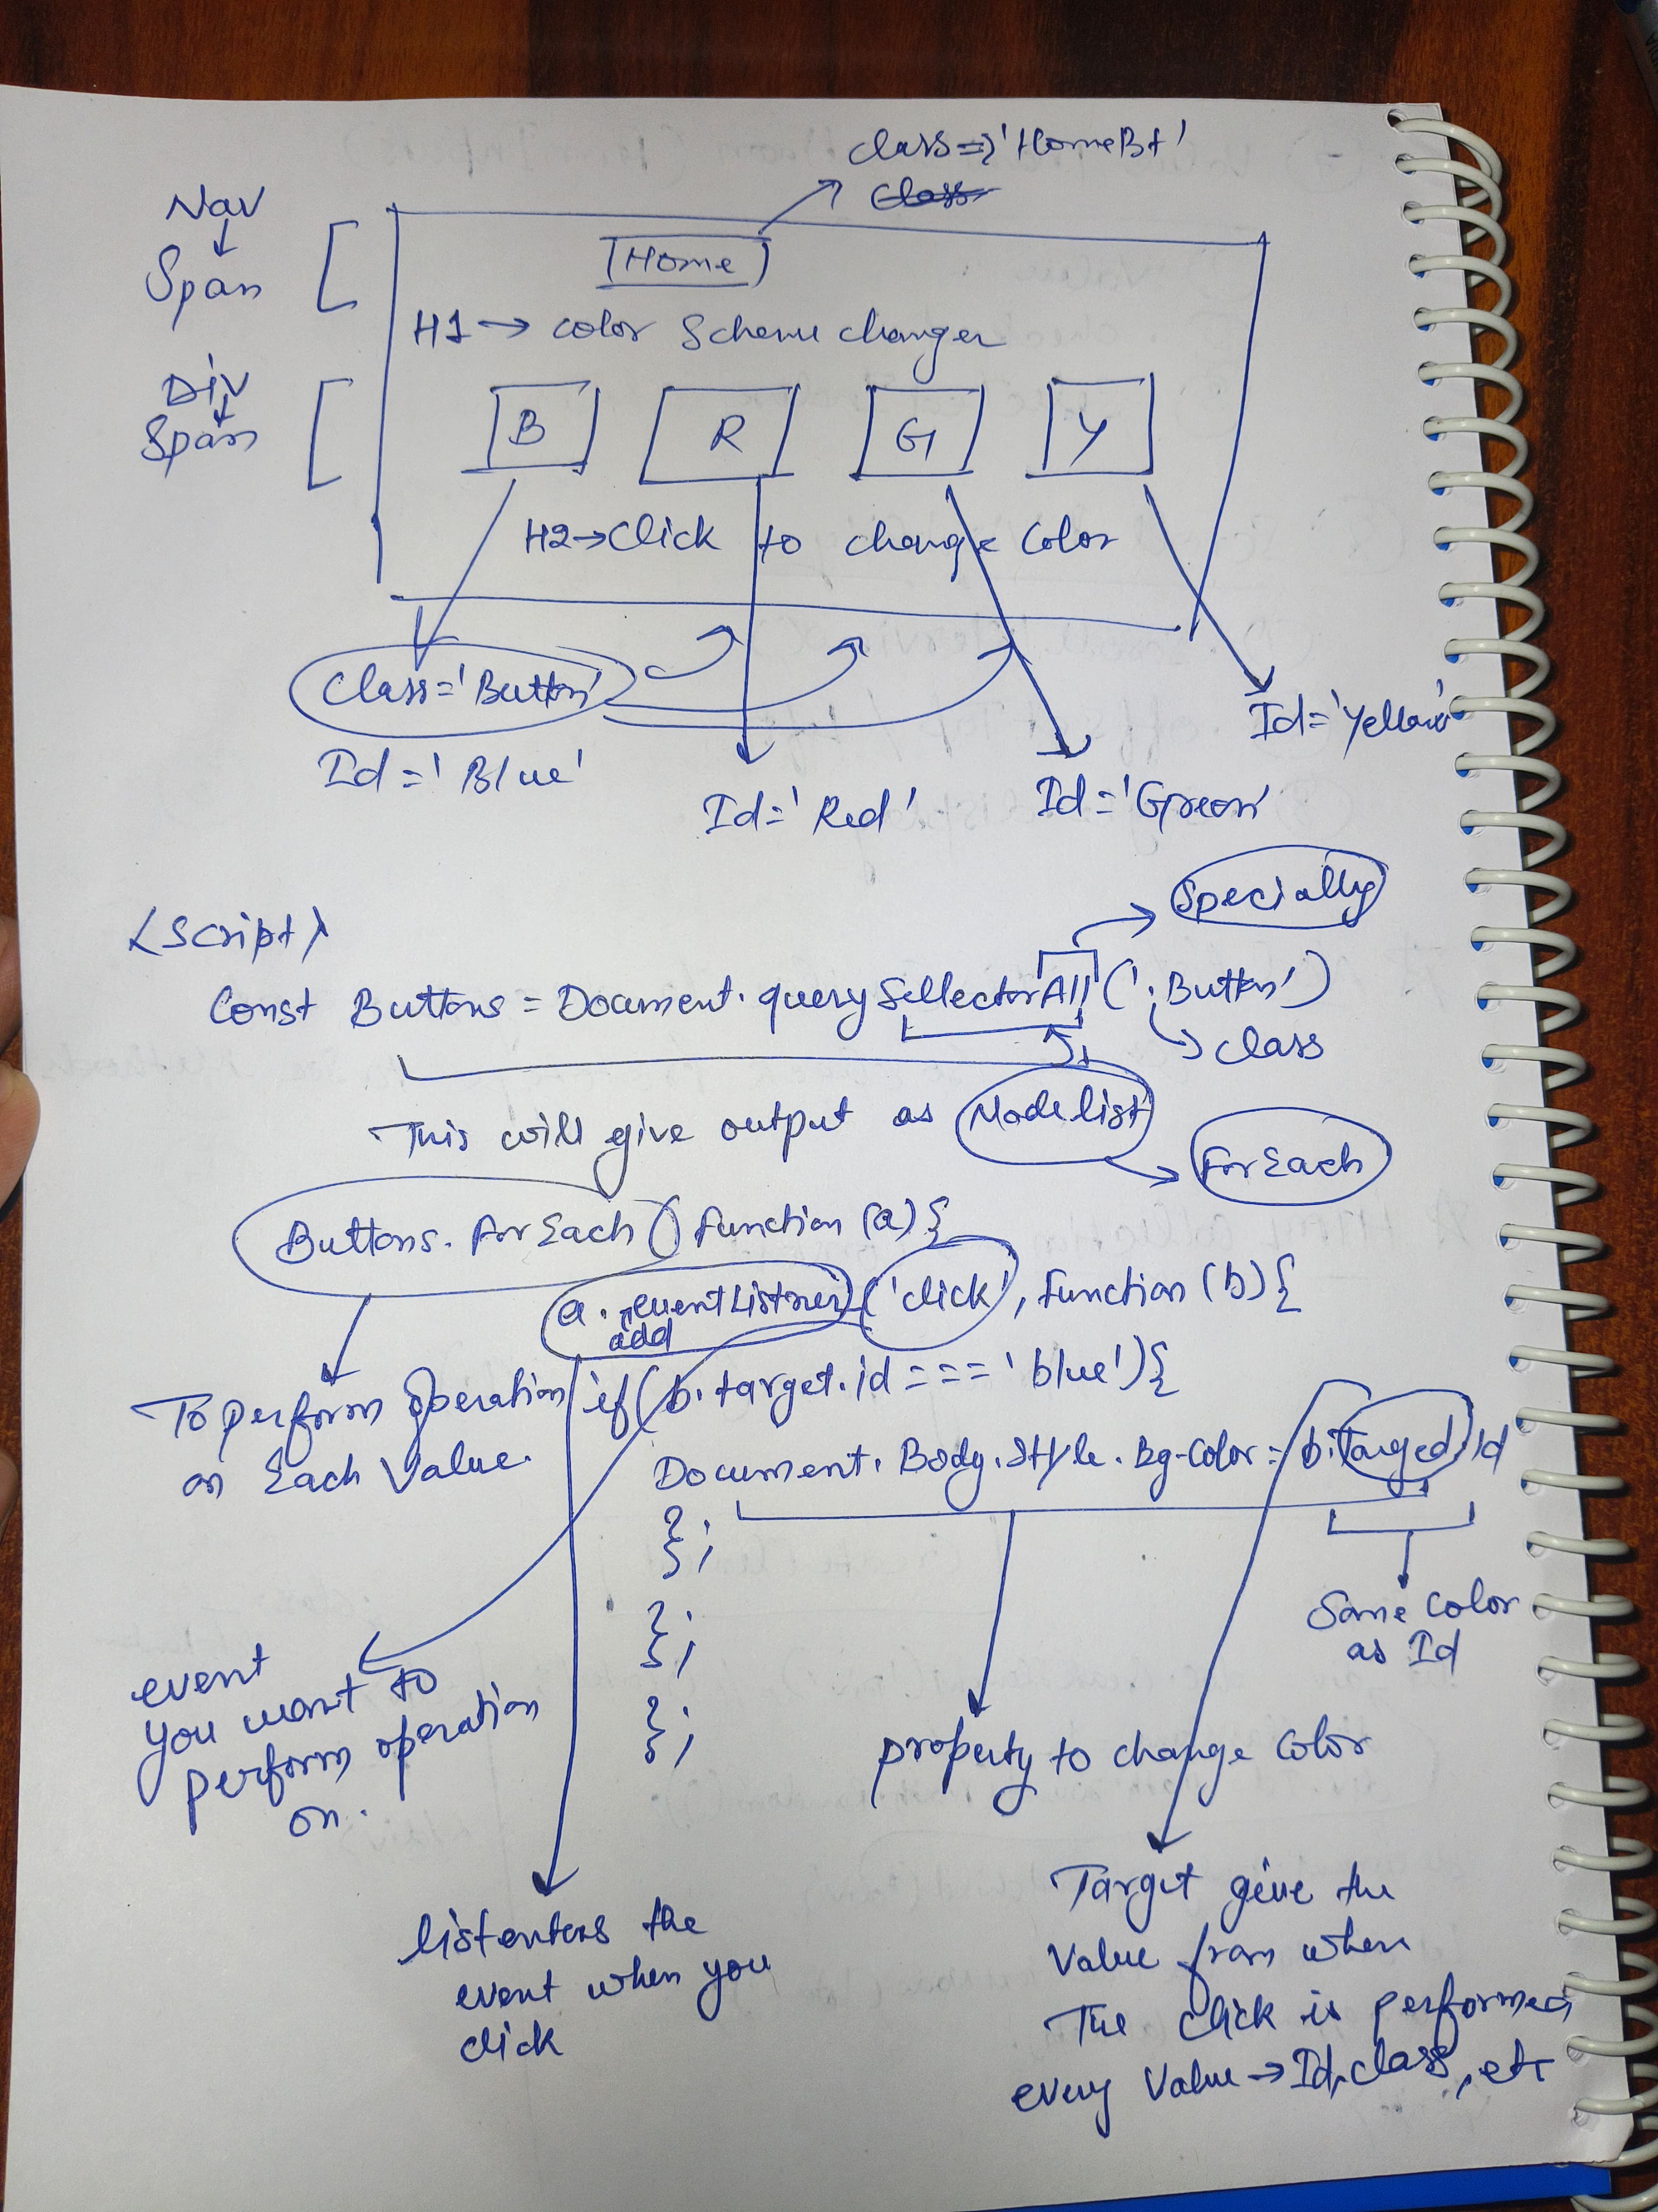 class => 'HomeBt'
class
Nav
Span
Home
H1 → color Scheme changer
Div
Span
B R G Y
H2 → Click to change Color
Class = 'Button'
Id = 'Blue'
Id = 'Red'
Id = 'Green'
Id = 'Yellow'
Specially
<Script>
Const Buttons = Document.querySellectorAll('.Button')
class
This will give output as Nodelist
ForEach
Buttons.ForEach(function(a){
a.addeventListner('click', function(b){
To perform operation
on Each Value.
if(b.target.id === 'blue'){
Document.Body.Style.Bg-Color = b.Targed.id
};
};
};
Same Color
as Id
event
you want to
perform operation
on.
property to change Color
listenters the
event when you
click
Target give the
Value from where
The click is performed
every Value → Id, class, etc